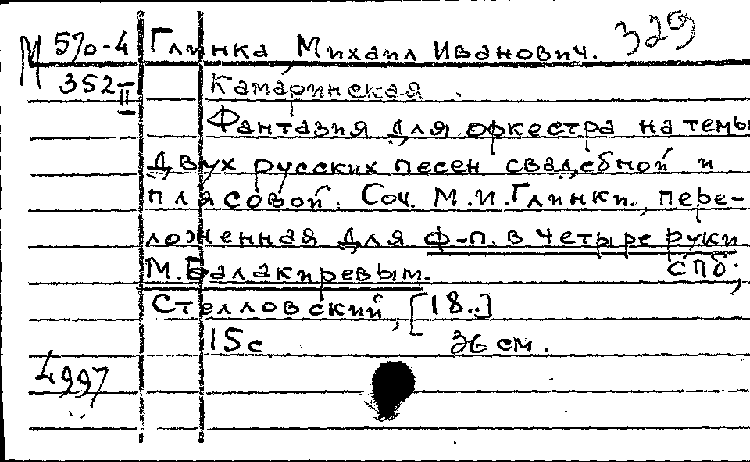 М 570-4 Глинка, Михаил Иванович. 329
352 II Камаринская.
Фантазия для оркестра на темы
двух русских песен свадебной и
плясовой. Соч. М.И.Глинки, пере-
ложенная для ф-п. в четыре руки
М.Балакиревым. СПб.,
Стелловский, [18..]
15с 36 см.
4997